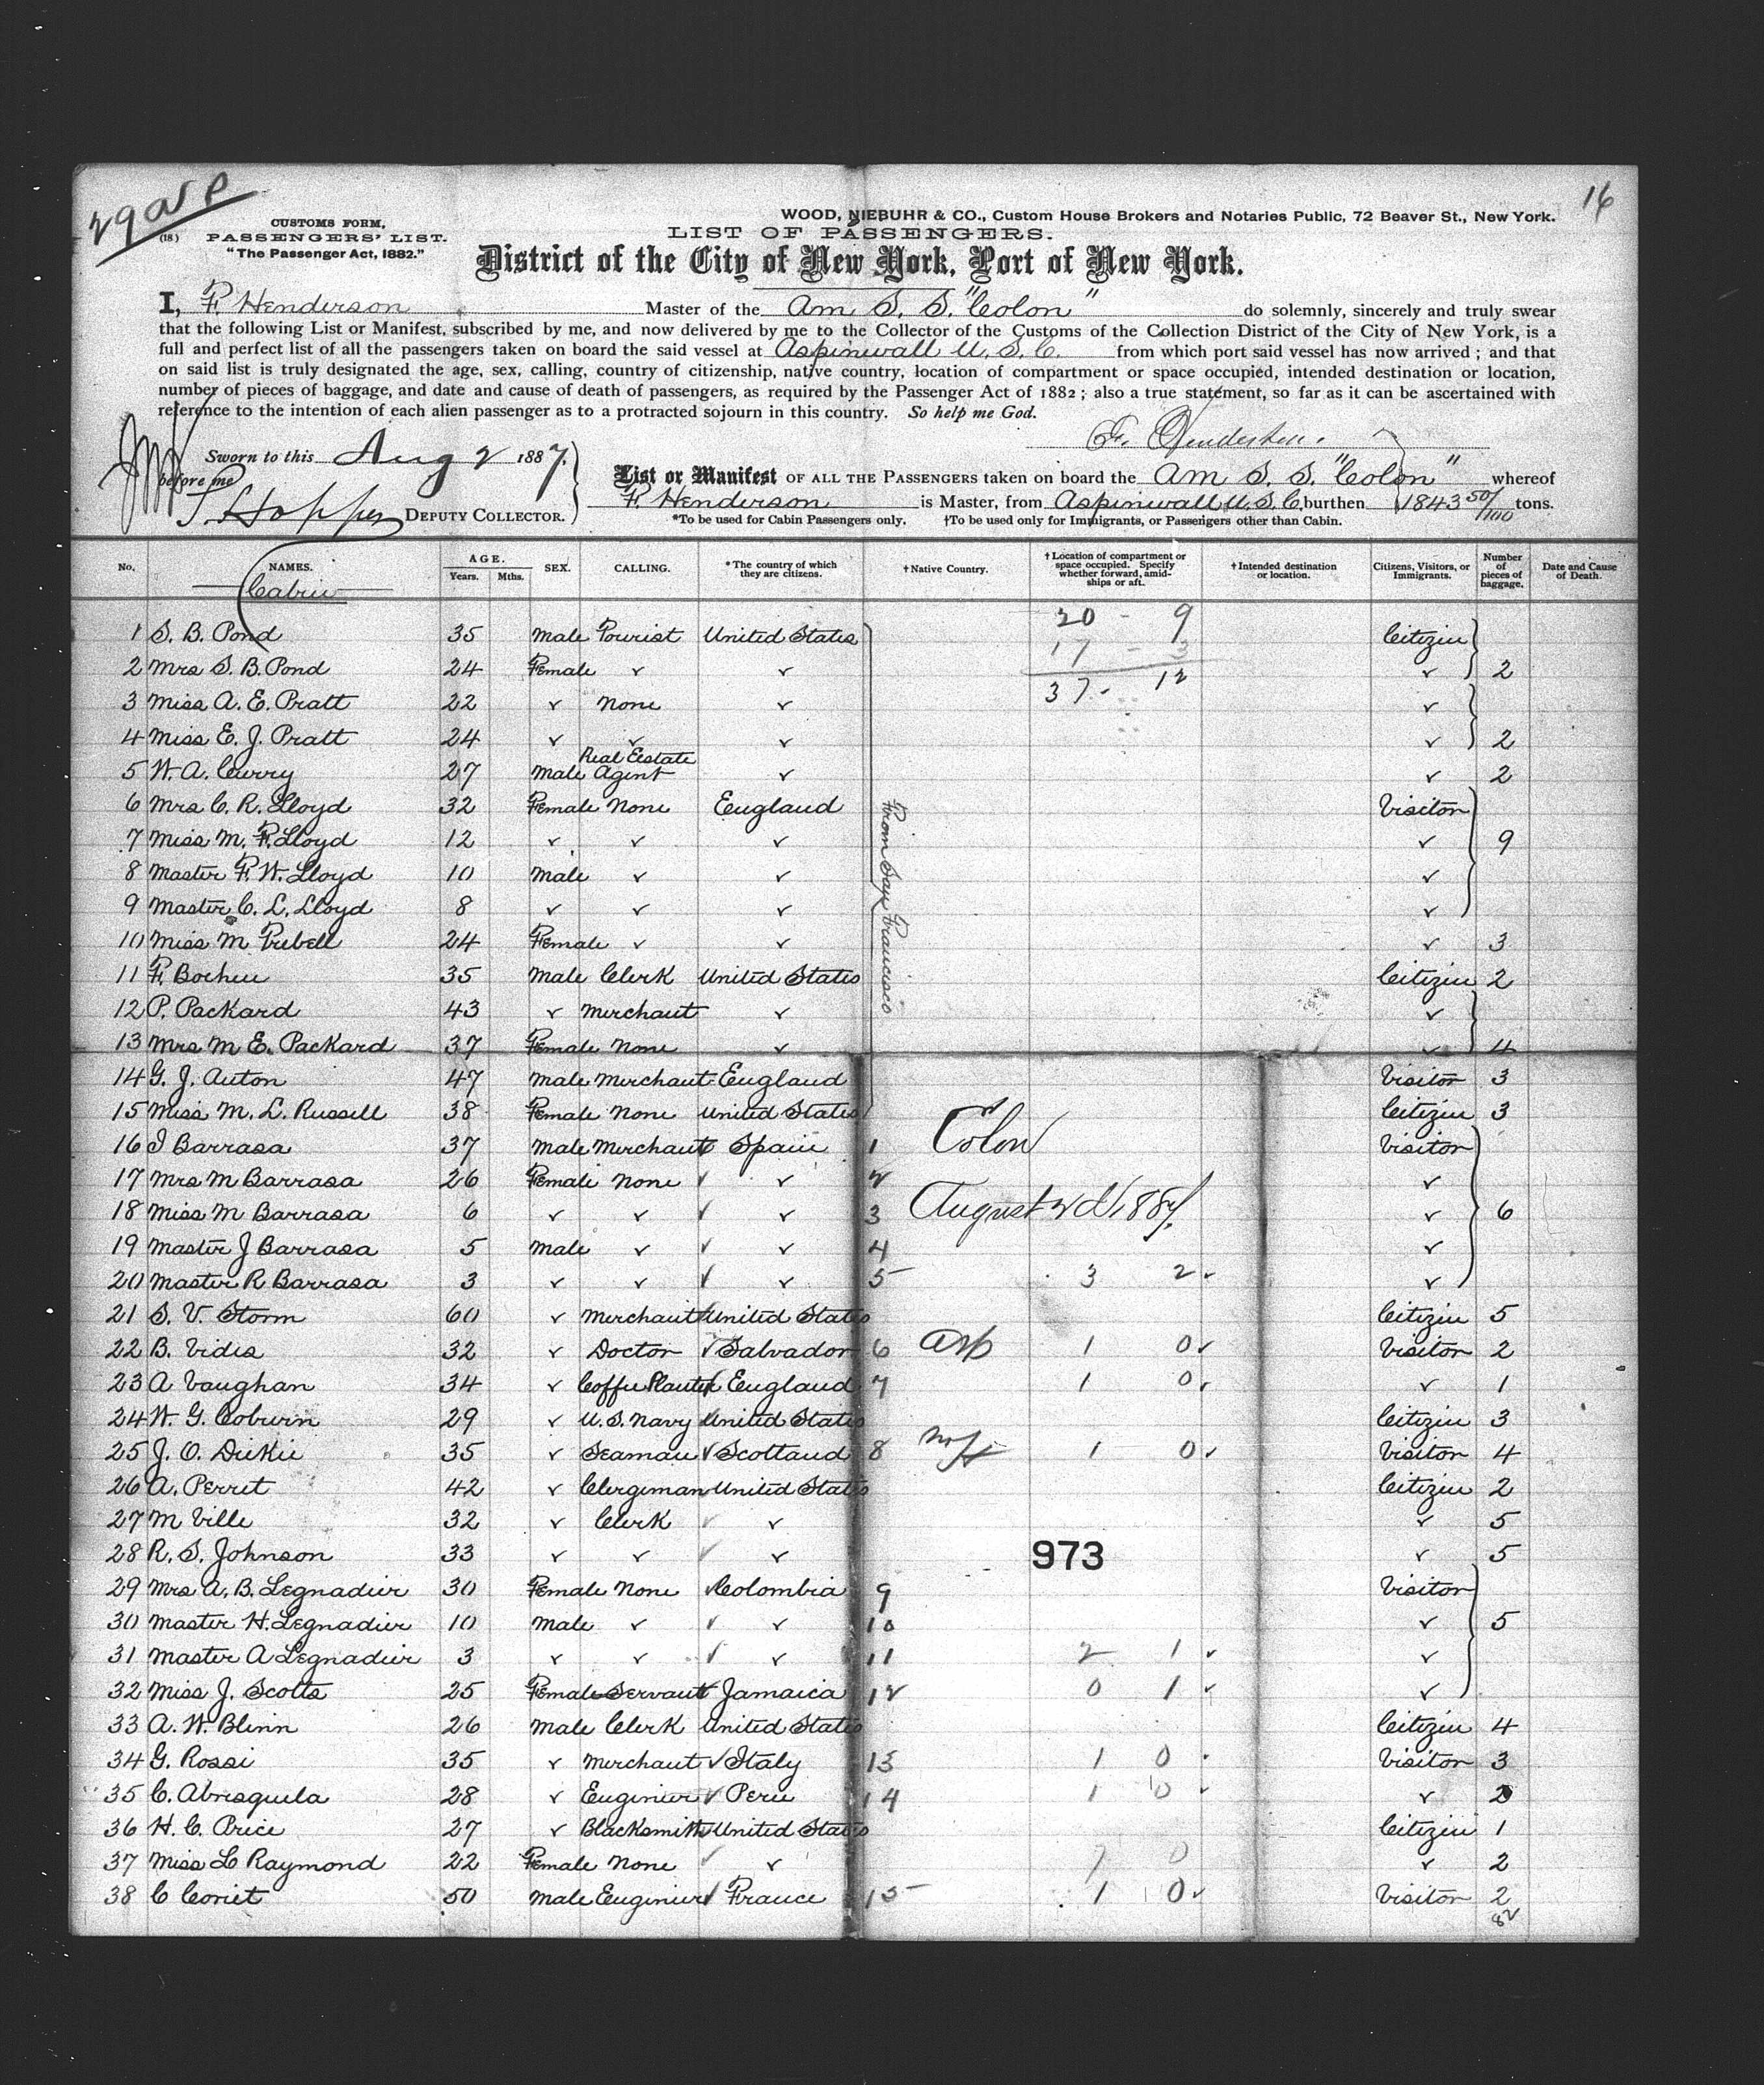 29 asp
16
WOOD, NIEBUHR & CO., Custom House Brokers and Notaries Public, 72 Beaver St., New York.
(18) CUSTOMS FORM,
PASSENGERS' LIST.
"The Passenger Act, 1882."
LIST OF PASSENGERS.
District of the City of New York, Port of New York.
I, F. Henderson Master of the Am S. S. "Colon" do solemnly, sincerely and truly swear
that the following List or Manifest, subscribed by me, and now delivered by me to the Collector of the Customs of the Collection District of the City of New York, is a
full and perfect list of all the passengers taken on board the said vessel at Aspinwall U. S. C. from which port said vessel has now arrived ; and that
on said list is truly designated the age, sex, calling, country of citizenship, native country, location of compartment or space occupied, intended destination or location,
number of pieces of baggage, and date and cause of death of passengers, as required by the Passenger Act of 1882 ; also a true statement, so far as it can be ascertained with
reference to the intention of each alien passenger as to a protracted sojourn in this country. So help me God.
F. Henderson.
Sworn to this Aug 2 1887.
before me
Hopper DEPUTY COLLECTOR.
List or Manifest OF ALL THE PASSENGERS taken on board the Am S. S. "Colon" whereof
F. Henderson is Master, from Aspinwall U. S. C. burthen 1843 50/100 tons.
*To be used for Cabin Passengers only. †To be used only for Immigrants, or Passengers other than Cabin.
No. NAMES. AGE. Years. Mths. SEX. CALLING. *The country of which they are citizens. †Native Country. †Location of compartment or space occupied. Specify whether forward, amidships or aft. †Intended destination or location. Citizens, Visitors, or Immigrants. Number of pieces of baggage. Date and Cause of Death.
Cabin
20 - 9
1 S. B. Pond 35 Male Tourist United States Citizen
17 - 3
2 Mrs S. B. Pond 24 Female ✓ ✓ ✓ 2
37 - 12
3 Miss A. E. Pratt 22 ✓ None ✓ ✓
4 Miss E. J. Pratt 24 ✓ ✓ ✓ ✓ 2
5 W. A. Curry 27 Male Real Estate Agent ✓ ✓ 2
6 Mrs C. R. Lloyd 32 Female None England Visitor
7 Miss M. F. Lloyd 12 ✓ ✓ ✓ ✓ 9
8 Master F. W. Lloyd 10 Male ✓ ✓ ✓
9 Master C. L. Lloyd 8 ✓ ✓ ✓ ✓
10 Miss M 24 Female ✓ ✓ ✓ 3
From San Francisco
11 F. 35 Male Clerk United States Citizen 2
12 P. Packard 43 ✓ Merchant ✓ ✓
13 Mrs M E. Packard 37 Female None ✓ ✓ 4
14 G. J. Auton 47 Male Merchant England Visitor 3
15 Miss M. L. Russell 38 Female None United States Citizen 3
16 I Barrasa 37 Male Merchant Spain 1 Colon Visitor
17 Mrs M Barrasa 26 Female None ✓ ✓ 2 ✓
18 Miss M Barrasa 6 ✓ ✓ ✓ ✓ 3 August 2d 1887. ✓ 6
19 Master J Barrasa 5 Male ✓ ✓ ✓ 4 ✓
20 Master R Barrasa 3 ✓ ✓ ✓ ✓ 5 3 2 ✓ ✓
21 S. V. Storm 60 ✓ Merchant United States Citizen 5
22 B. Vides 32 ✓ Doctor ✓ Salvador 6 asp 1 0 ✓ Visitor 2
23 A Vaughan 34 ✓ Coffee Planter England 7 1 0 ✓ ✓ 1
24 W. G. Coburn 29 ✓ U. S. Navy United States Citizen 3
25 J. O. Dickie 35 ✓ Seaman ✓ Scotland 8 1 0 ✓ Visitor 4
26 A. Perret 42 ✓ Clergiman United States Citizen 2
27 M Ville 32 ✓ Clerk ✓ ✓ ✓ 5
28 R. S. Johnson 33 ✓ ✓ ✓ ✓ 973 ✓ 5
29 Mrs A. B. Legnadier 30 Female None ✓ Colombia 9 Visitor
30 Master H. Legnadier 10 Male ✓ ✓ ✓ 10 ✓ 5
31 Master A Legnadier 3 ✓ ✓ ✓ ✓ 11 2 1 ✓ ✓
32 Miss J. Scotts 25 Female Servant Jamaica 12 0 1 ✓ ✓
33 A. W. Blinn 26 Male Clerk United States Citizen 4
34 G. Rossi 35 ✓ Merchant ✓ Italy 13 1 0 Visitor 3
35 C. Abrisquela 28 ✓ Enginier ✓ Peru 14 1 0 ✓ ✓ 2
36 H. C. Price 27 ✓ Blacksmith United States Citizen 1
37 Miss L Raymond 22 Female None ✓ ✓ 7 0 ✓ 2
38 C Coriet 50 Male Enginier ✓ France 15 1 0 ✓ Visitor 2
82